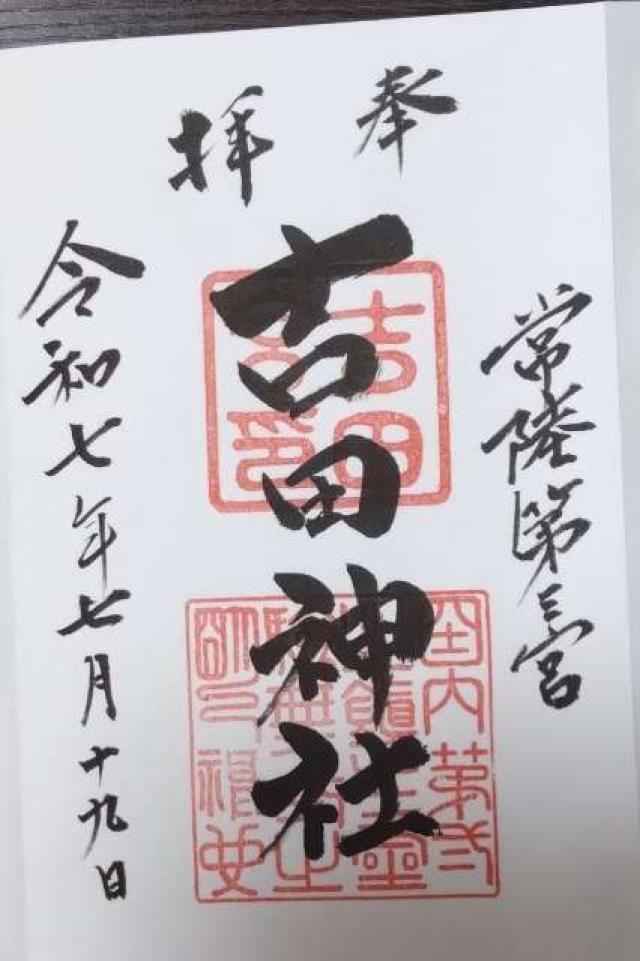 奉拝
常陸第三宮
吉田神社
令和七年七月十九日